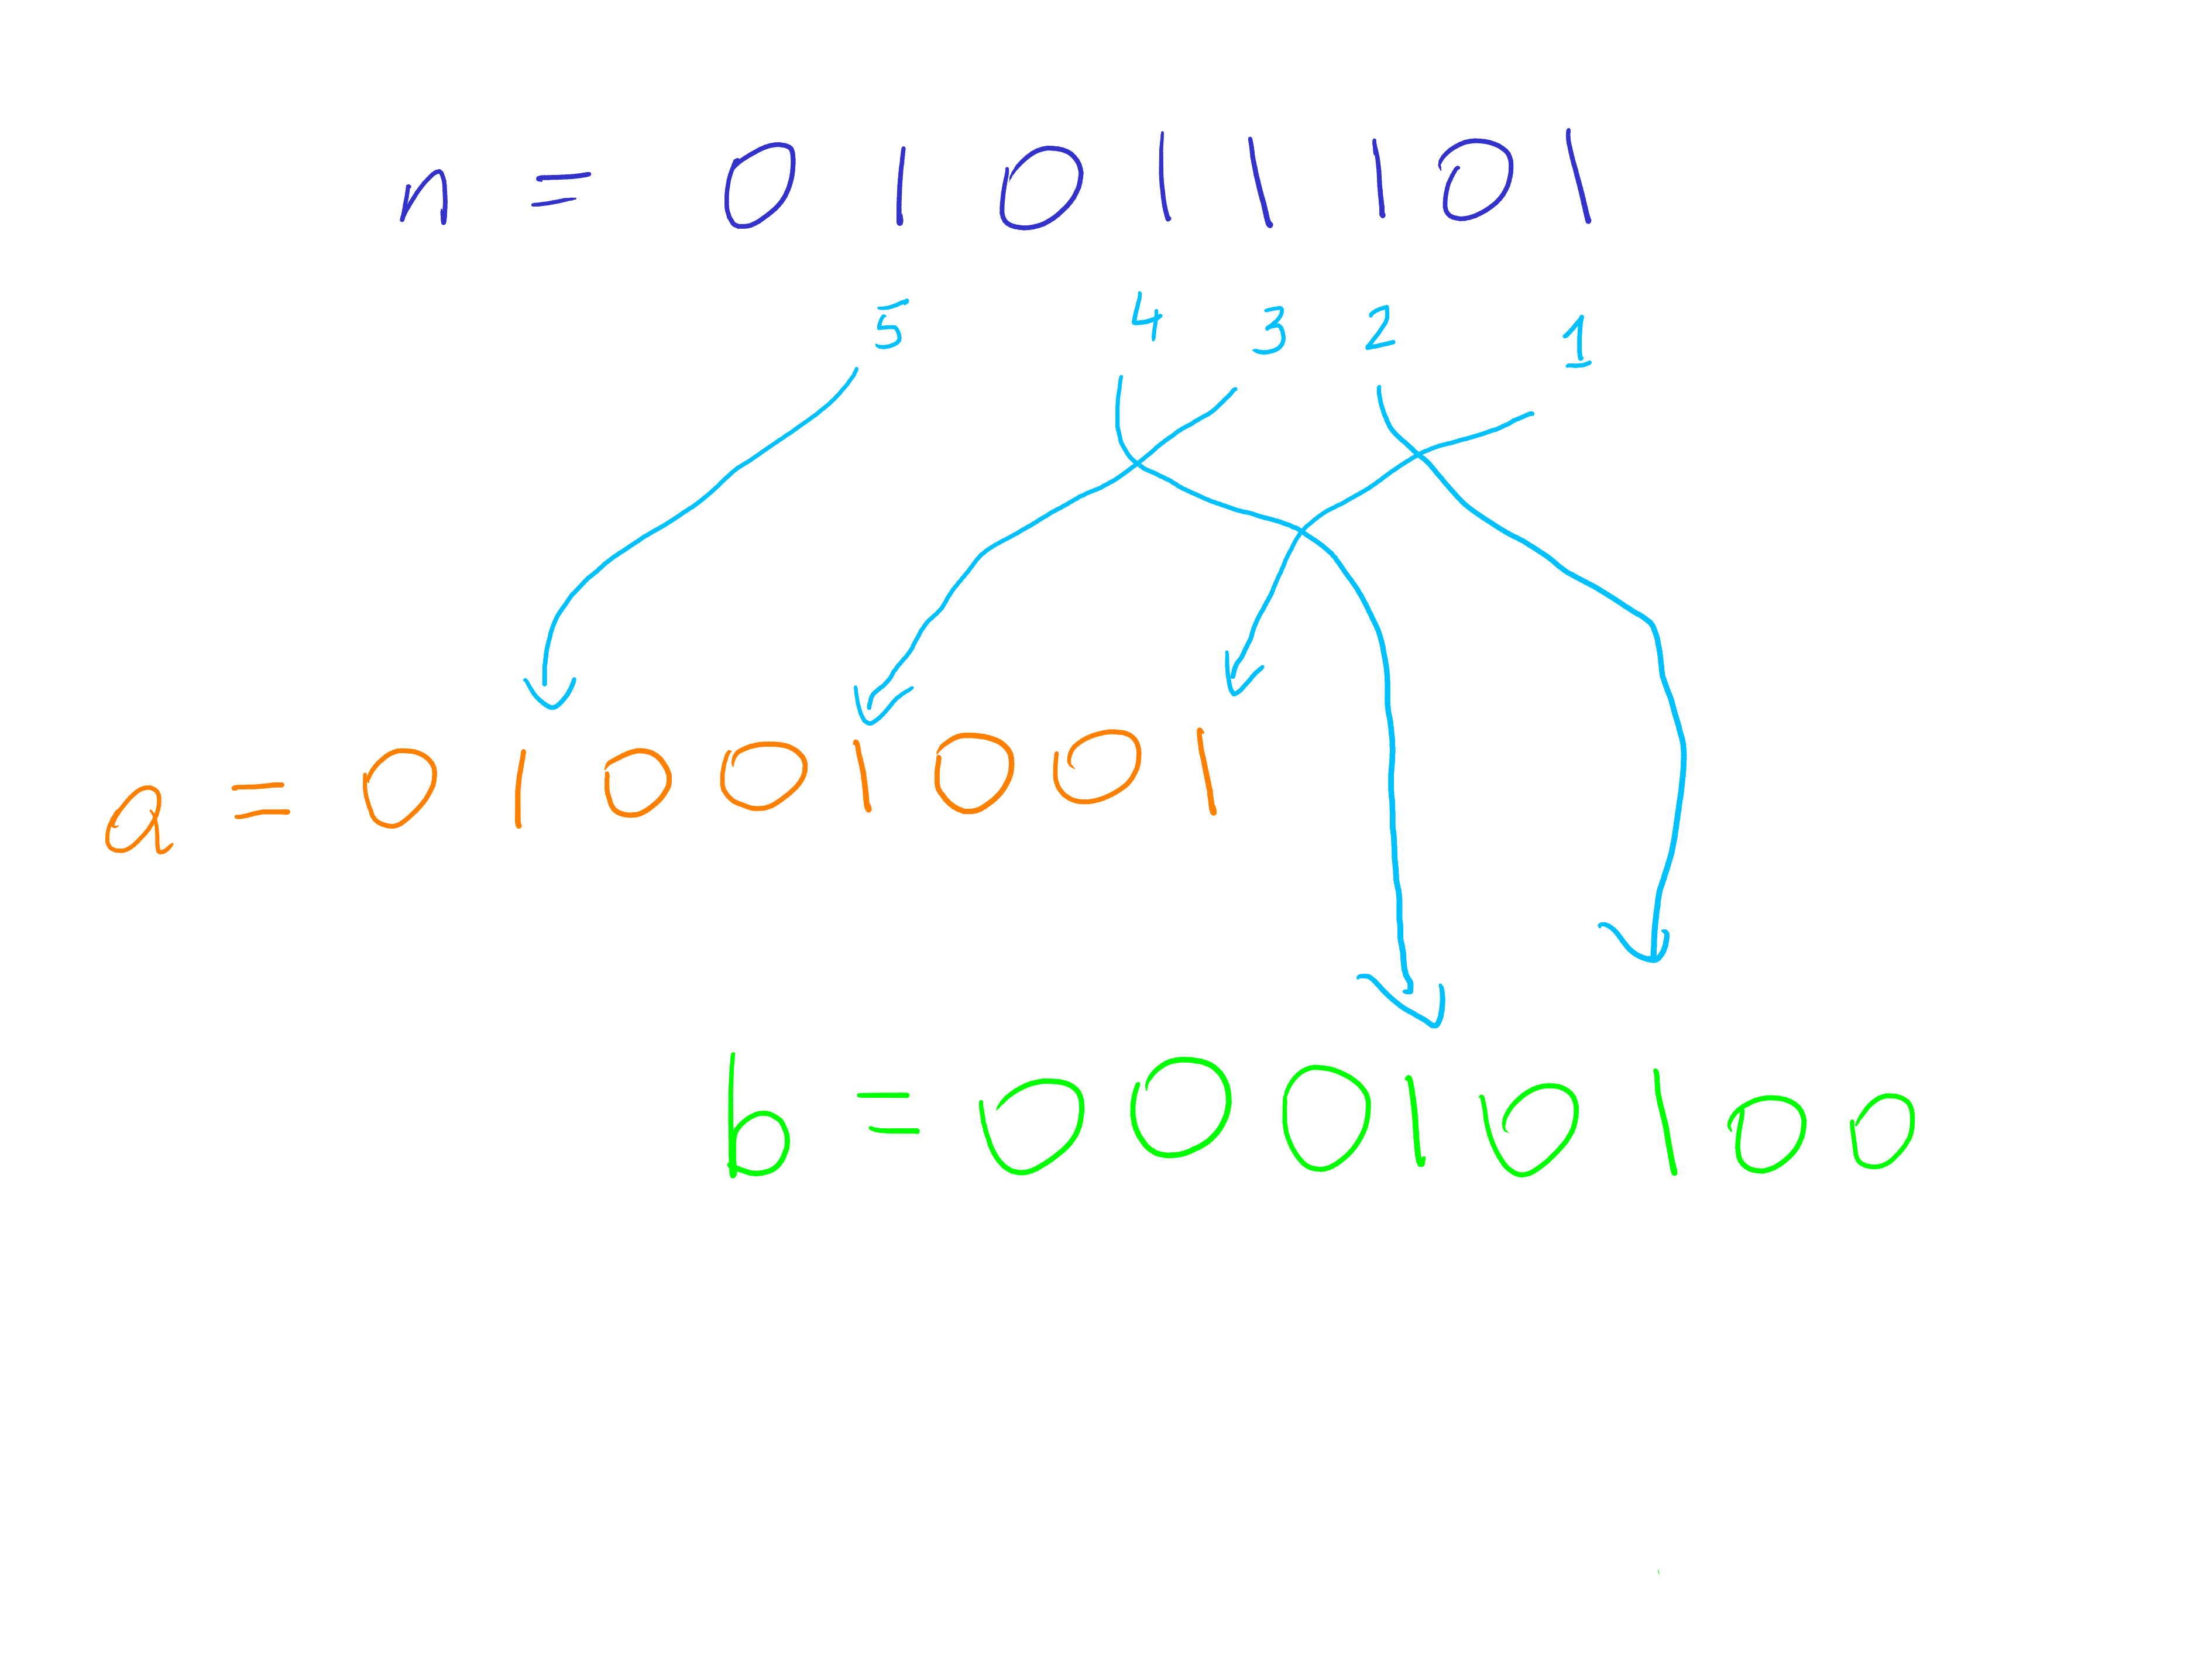 n = 0 1 0 1 1 1 0 1
5 4 3 2 1
a = 0 1 0 0 1 0 0 1
b = 0 0 0 1 0 1 0 0